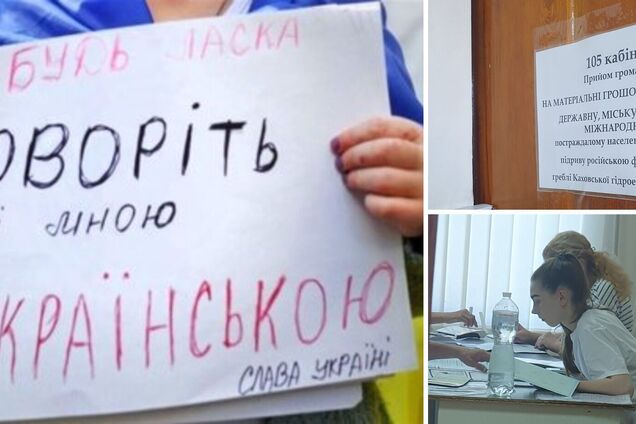 БУДЬ ЛАСКА
ОВОРІТЬ
І МНОЮ
КРАЇНСЬКОЮ
СЛАВА УКРАЇНІ
105 кабін
Прийом грома
НА МАТЕРІАЛЬНІ ГРОШО
ДЕРЖАВНУ, МІСЬКУ
МІЖНАРОДН
постраждалому населен
підриву російською ф
греблі Каховської гідрое